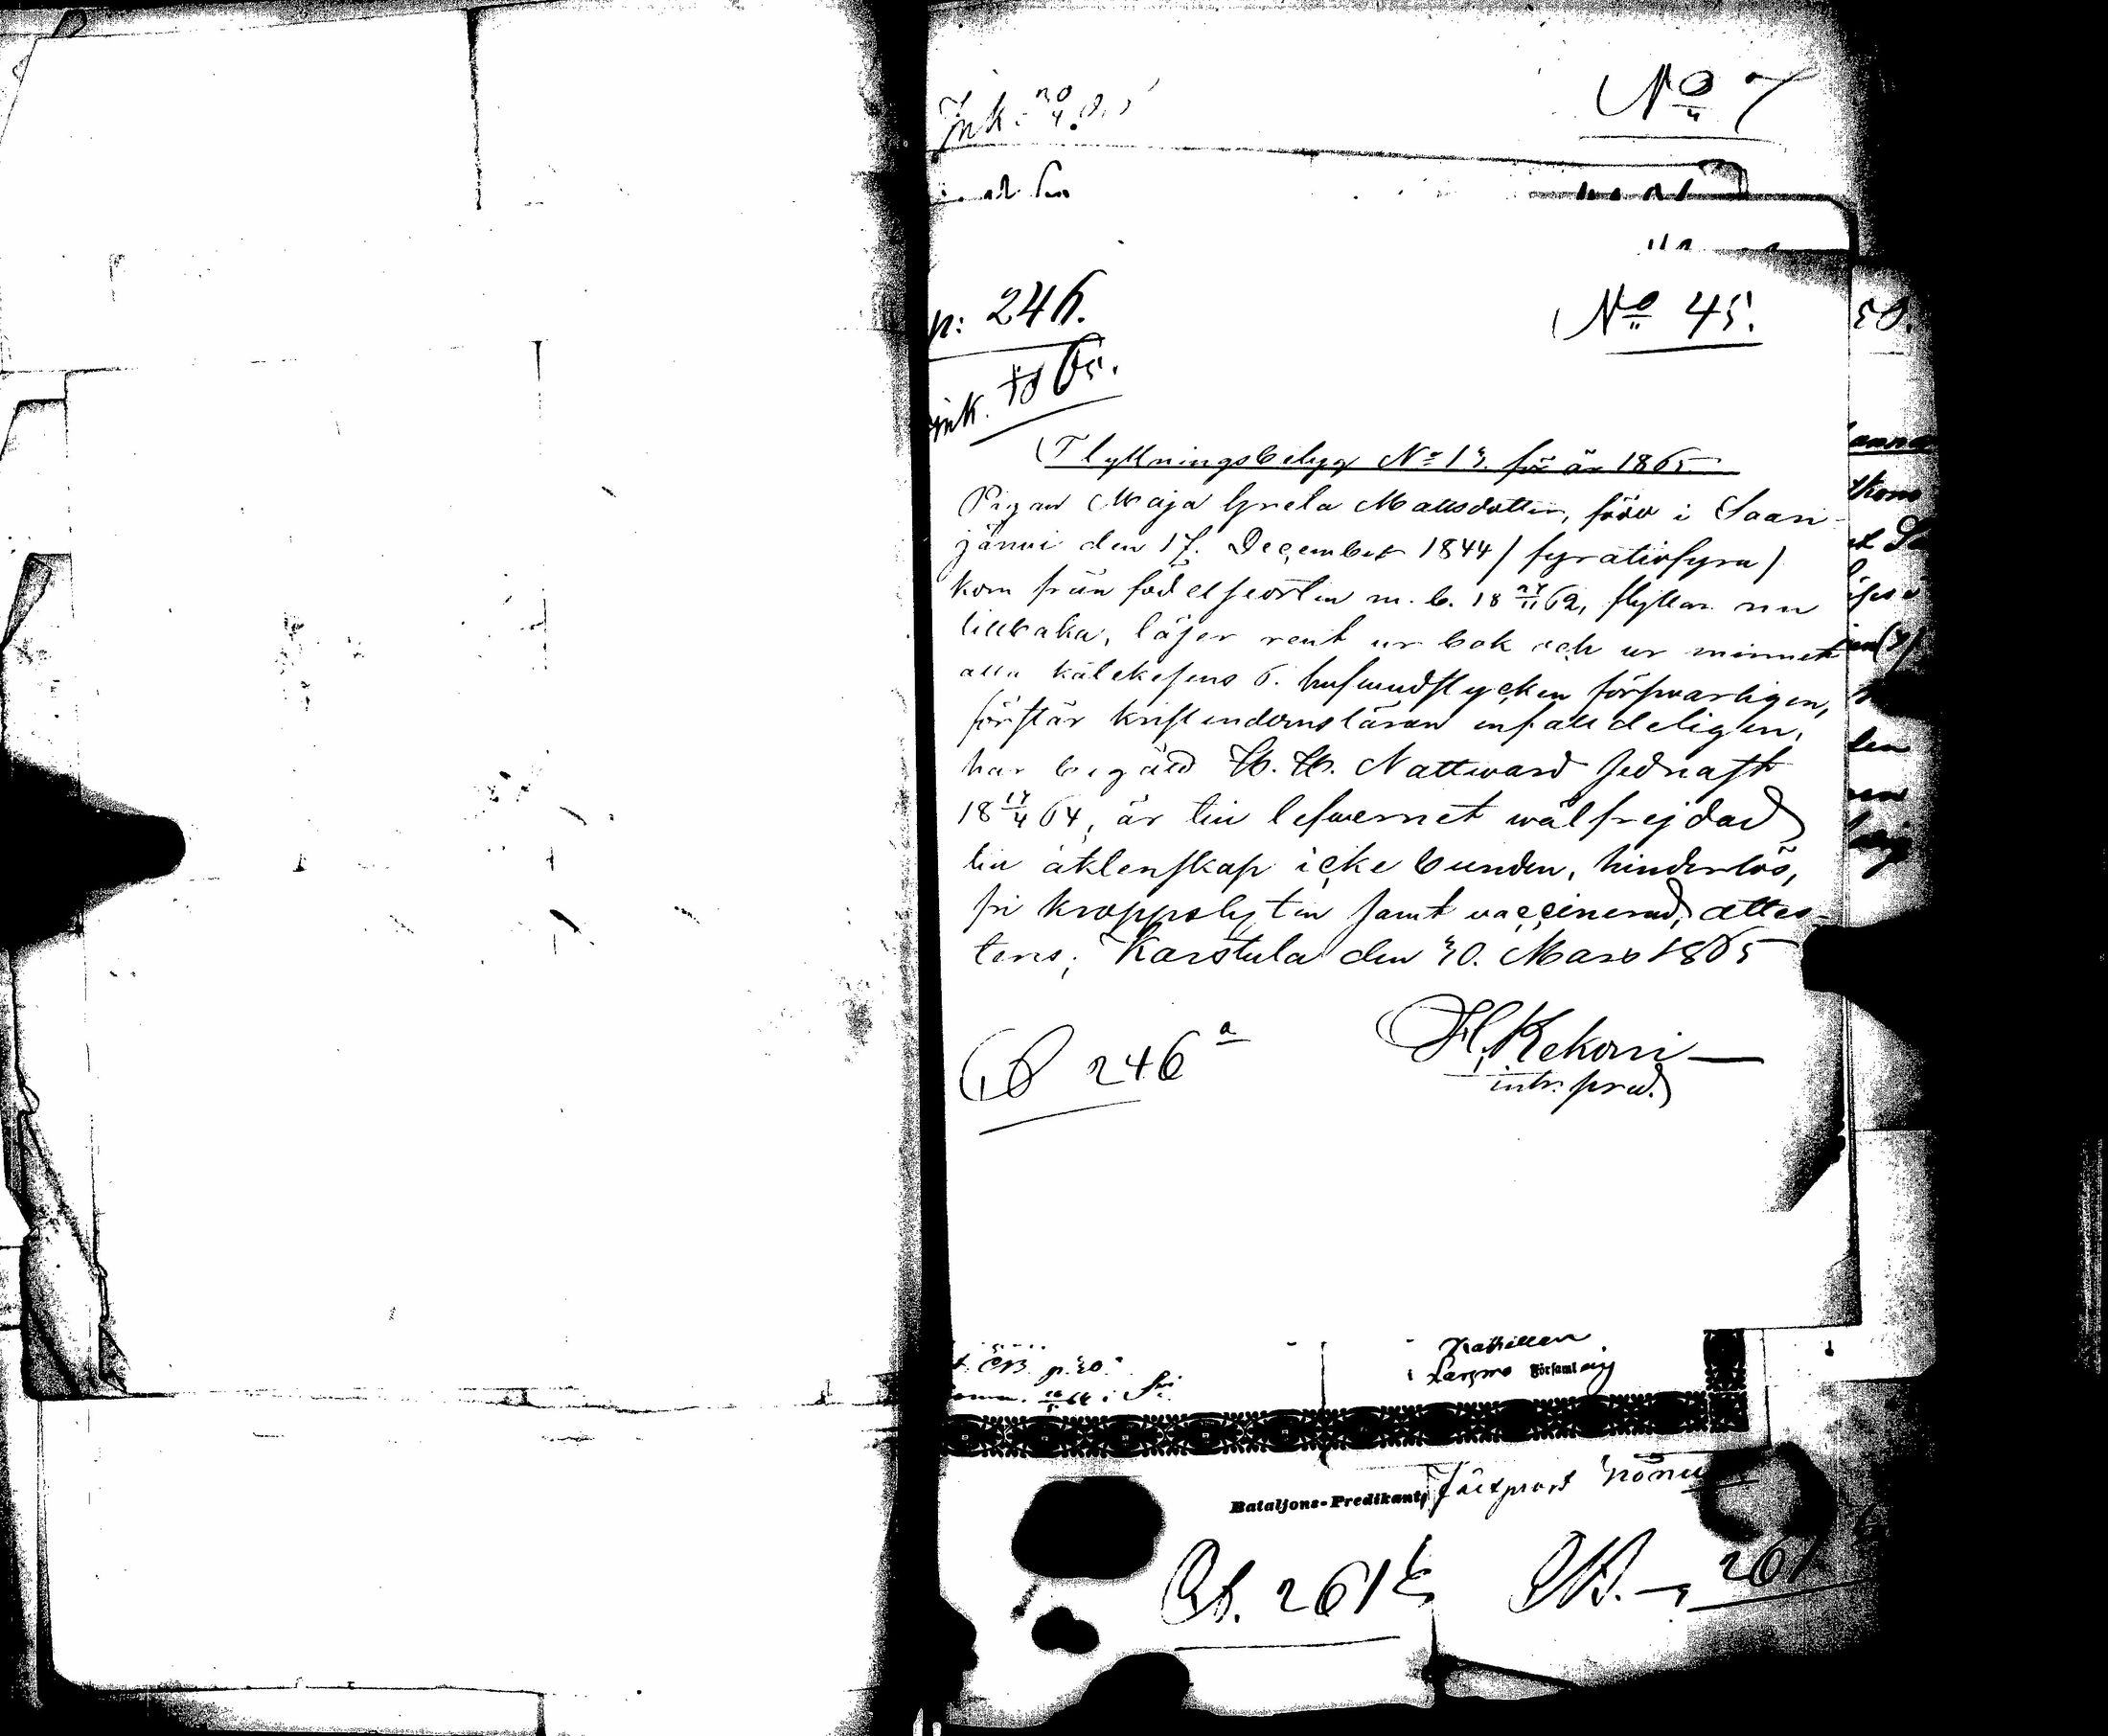 Ink. 30/4
No 7
p: 246.
No 45.
50.
ink. 65.
Flyttningsbetyg No 13. för år 1865
Pigan Maja Greta Mattsdotter, född i Saari-
järvi den 17. December 1844 / fyratiofyra /
kom från födelseorten m. b. 18 27/11 62, flyttar nu
tillbaka, läser rent ur bok och ur minnet
alla kätekesens 6. hufwudstycken försvarligen,
förstår kristendomsläran enfalldeligen,
har begått H. H. Nattward sednast
18 17/4 64, är till lefwernet wälfrejdad
till äktenskap icke bunden, hinderlös,
fri kroppslyten samt vaccinerad, attes-
teras; Karstula den 30. Mars 1865
CB 246 a
H. Kekoni
intr. pred.
CB. p. 30.
i Larsmo Församling
Bataljons-Predikant,
CB. 261
CB. 261